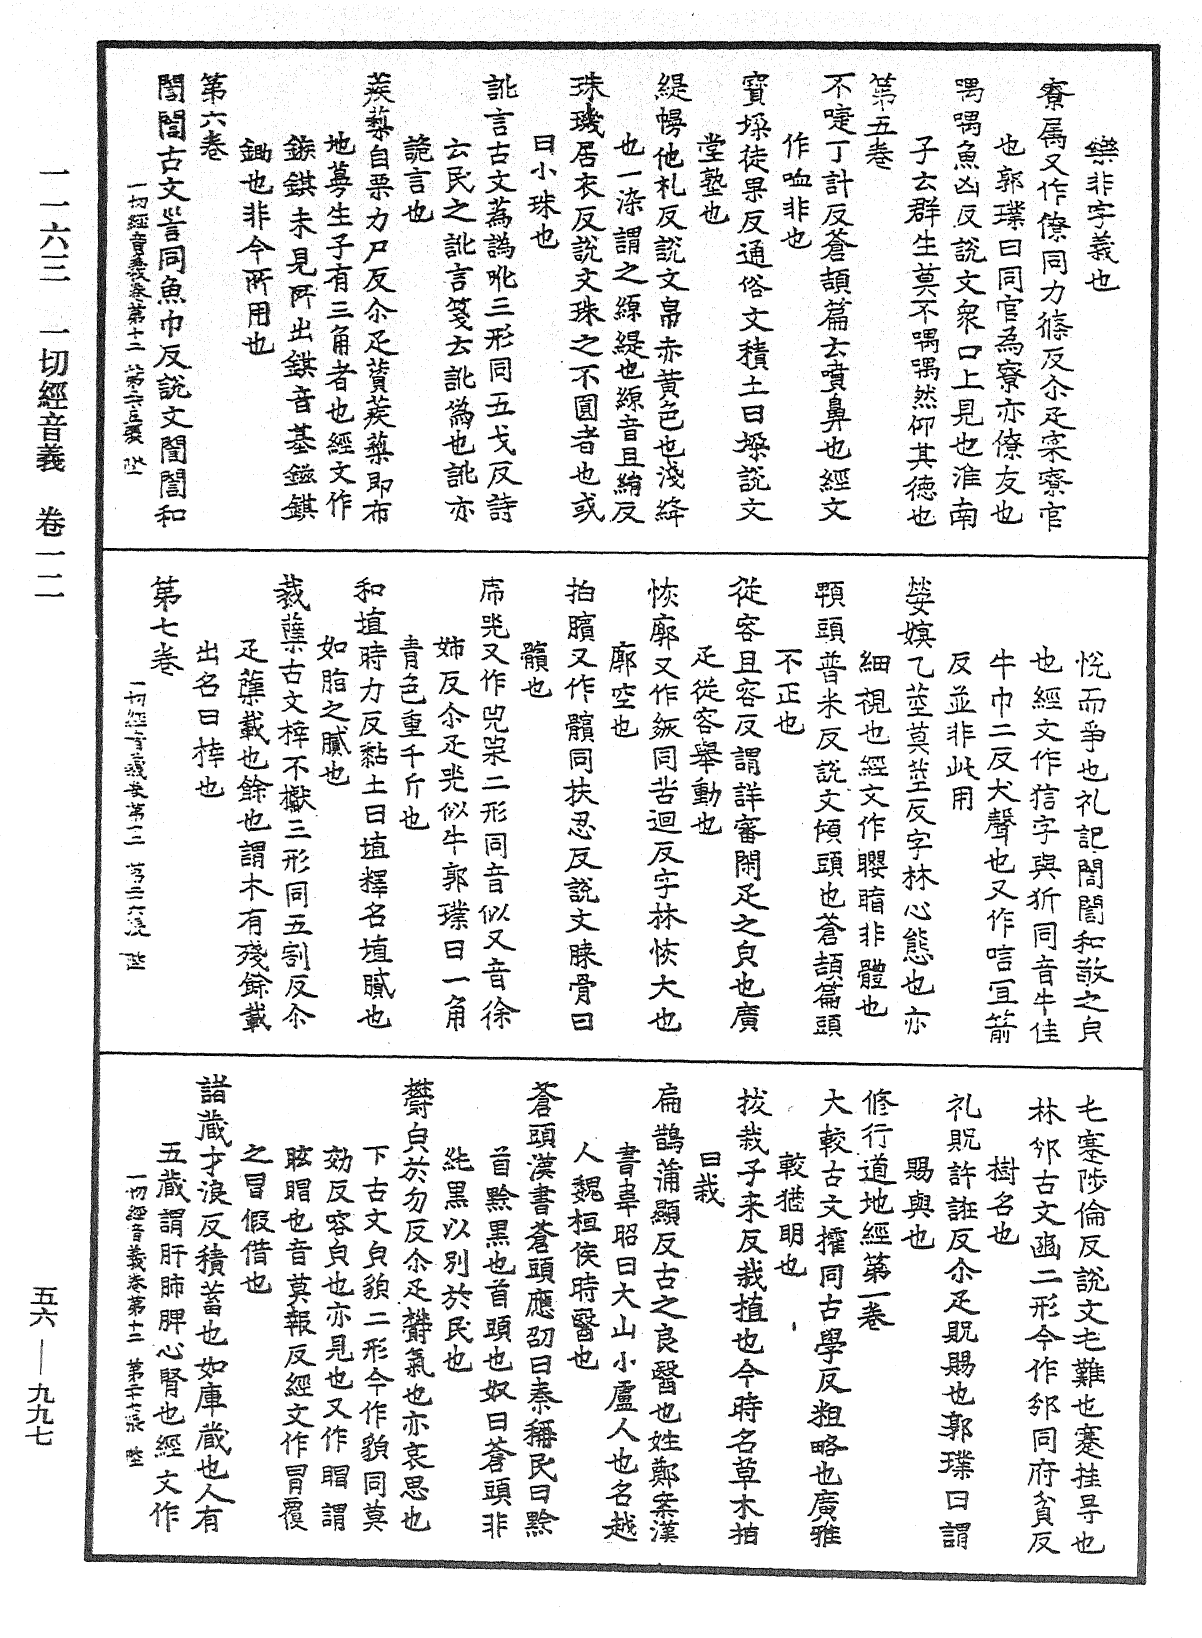 樂非字義也
寮属又作僚同力條反尒疋寀寮官
也郭璞曰同官為寮亦僚友也
喁喁魚凶反說文衆口上見也淮南
子云群生莫不喁喁然仰其德也
第五卷
不嚏丁計反蒼頡篇云噴鼻也經文
作啑非也
寶垛徒果反通俗文積土曰垛說文
堂塾也
緹幔他札反說文帛赤黃色也淺絳
也一染謂之縓緹也縓音且絹反
珠璣居衣反說文珠之不圓者也或
曰小珠也
訛言古文蔿譌吪三形同五戈反詩
云民之訛言箋云訛偽也訛亦
詭言也
蒺䔧自栗力尸反尒疋薋蒺䔧即布
地蔓生子有三角者也經文作
鏃錤未見所出錤音基鎡錤
鋤也非今所用也
第六卷
誾誾古文訔同魚巾反說文誾誾和
一切經音義卷第十二 第二十五張 陛
悅而爭也礼記誾誾和敬之皃
也經文作狺字與㹞同音牛佳
牛巾二反犬聲也又作唁宜箭
反並非此用
嫈嫇乙莖莫莖反字林心態也亦
細視也經文作瞾䁅非體也
頖頭普米反說文傾頭也蒼頡篇頭
不正也
從容且容反謂詳審閑疋之皃也廣
疋從容舉動也
恢廓又作𢙇同苦迴反字林恢大也
廓空也
拍臏又作髕同扶忍反說文膝骨曰
髕也
𤰞兕又作兕𠒅二形同音似又音徐
姉反尒疋兕似牛郭璞曰一角
青色重千斤也
和埴時力反黏土曰埴釋名埴膩也
如脂之膩也
栽蘖古文㭮不𣡌三形同五割反尒
疋蘖載也餘也謂木有殘餘載
出名曰㭮也
第七卷
一切經音義卷第十二 第二十六張 陛
屯蹇陟倫反說文屯難也蹇挂㝵也
林邠古文豳二形今作邠同府貧反
樹名也
礼貺許誑反尒疋貺賜也郭璞曰謂
賜與也
修行道地經第一卷
大較古文㩴同古學反粗略也廣雅
較猶明也
拔栽子来反栽植也今時名草木拍
曰栽
扁鵲蒲顯反古之良醫也姓鄭案漢
書韋昭曰大山小盧人也名越
人魏桓侯時醫也
蒼頭漢書蒼頭應劭曰秦稱民曰黔
首黔黑也首頭也奴曰蒼頭非
純黑以別於民也
欝皃於勿反尒疋欝氣也亦哀思也
下古文皃貌二形今作貌同莫
効反容皃也亦見也又作䀤謂
眩䀤也音莫報反經文作冐覆
之冐假借也
諸蔵才浪反積蓄也如庫蔵也人有
五蔵謂肝肺脾心腎也經文作
一切經音義卷第十二 第二十七張 陛
一一六三 一切經音義 卷一二
五六——九九七